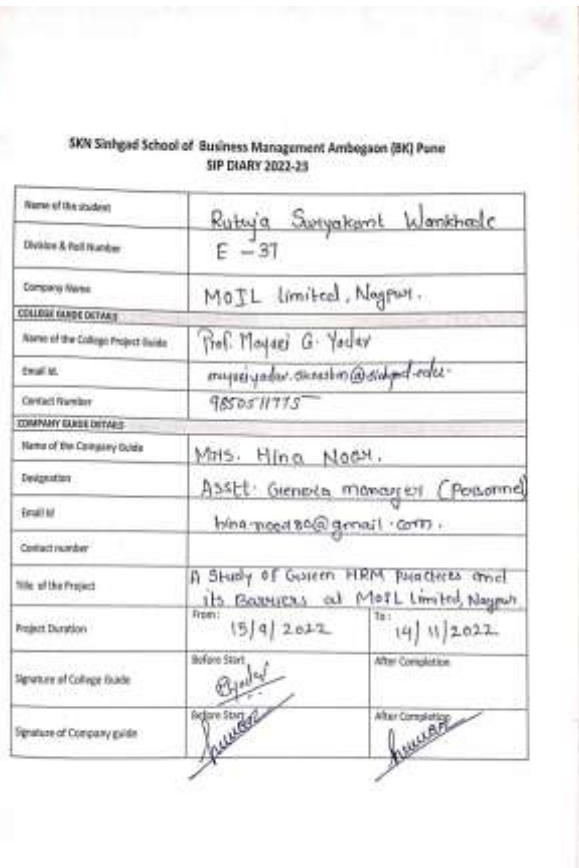 SKN Sinhgad School of Business Management Ambegaon (BK) Pune
SIP DIARY 2022-23
Name of the student
Rutuja Suryakant Wankhade
Division & Roll Number
E - 37
Company Name
MOIL limited, Nagpur.
COLLEGE GUIDE DETAILS
Name of the College Project Guide
Prof. Mayuri G. Yadav
Email Id.
Contact Number
9850511775
COMPANY GUIDE DETAILS
Name of the Company Guide
Mrs. Hina Noor.
Designation
Asstt. General manager (Personnel)
Email Id
Contact number
Title of the Project
A Study of Green HRM Practices and
its Barriers at MOIL Limited, Nagpur
Project Duration
From:
15/9/2022
To:
14/11/2022
Signature of College Guide
Before Start
After Completion
Signature of Company guide
Before Start
After Completion